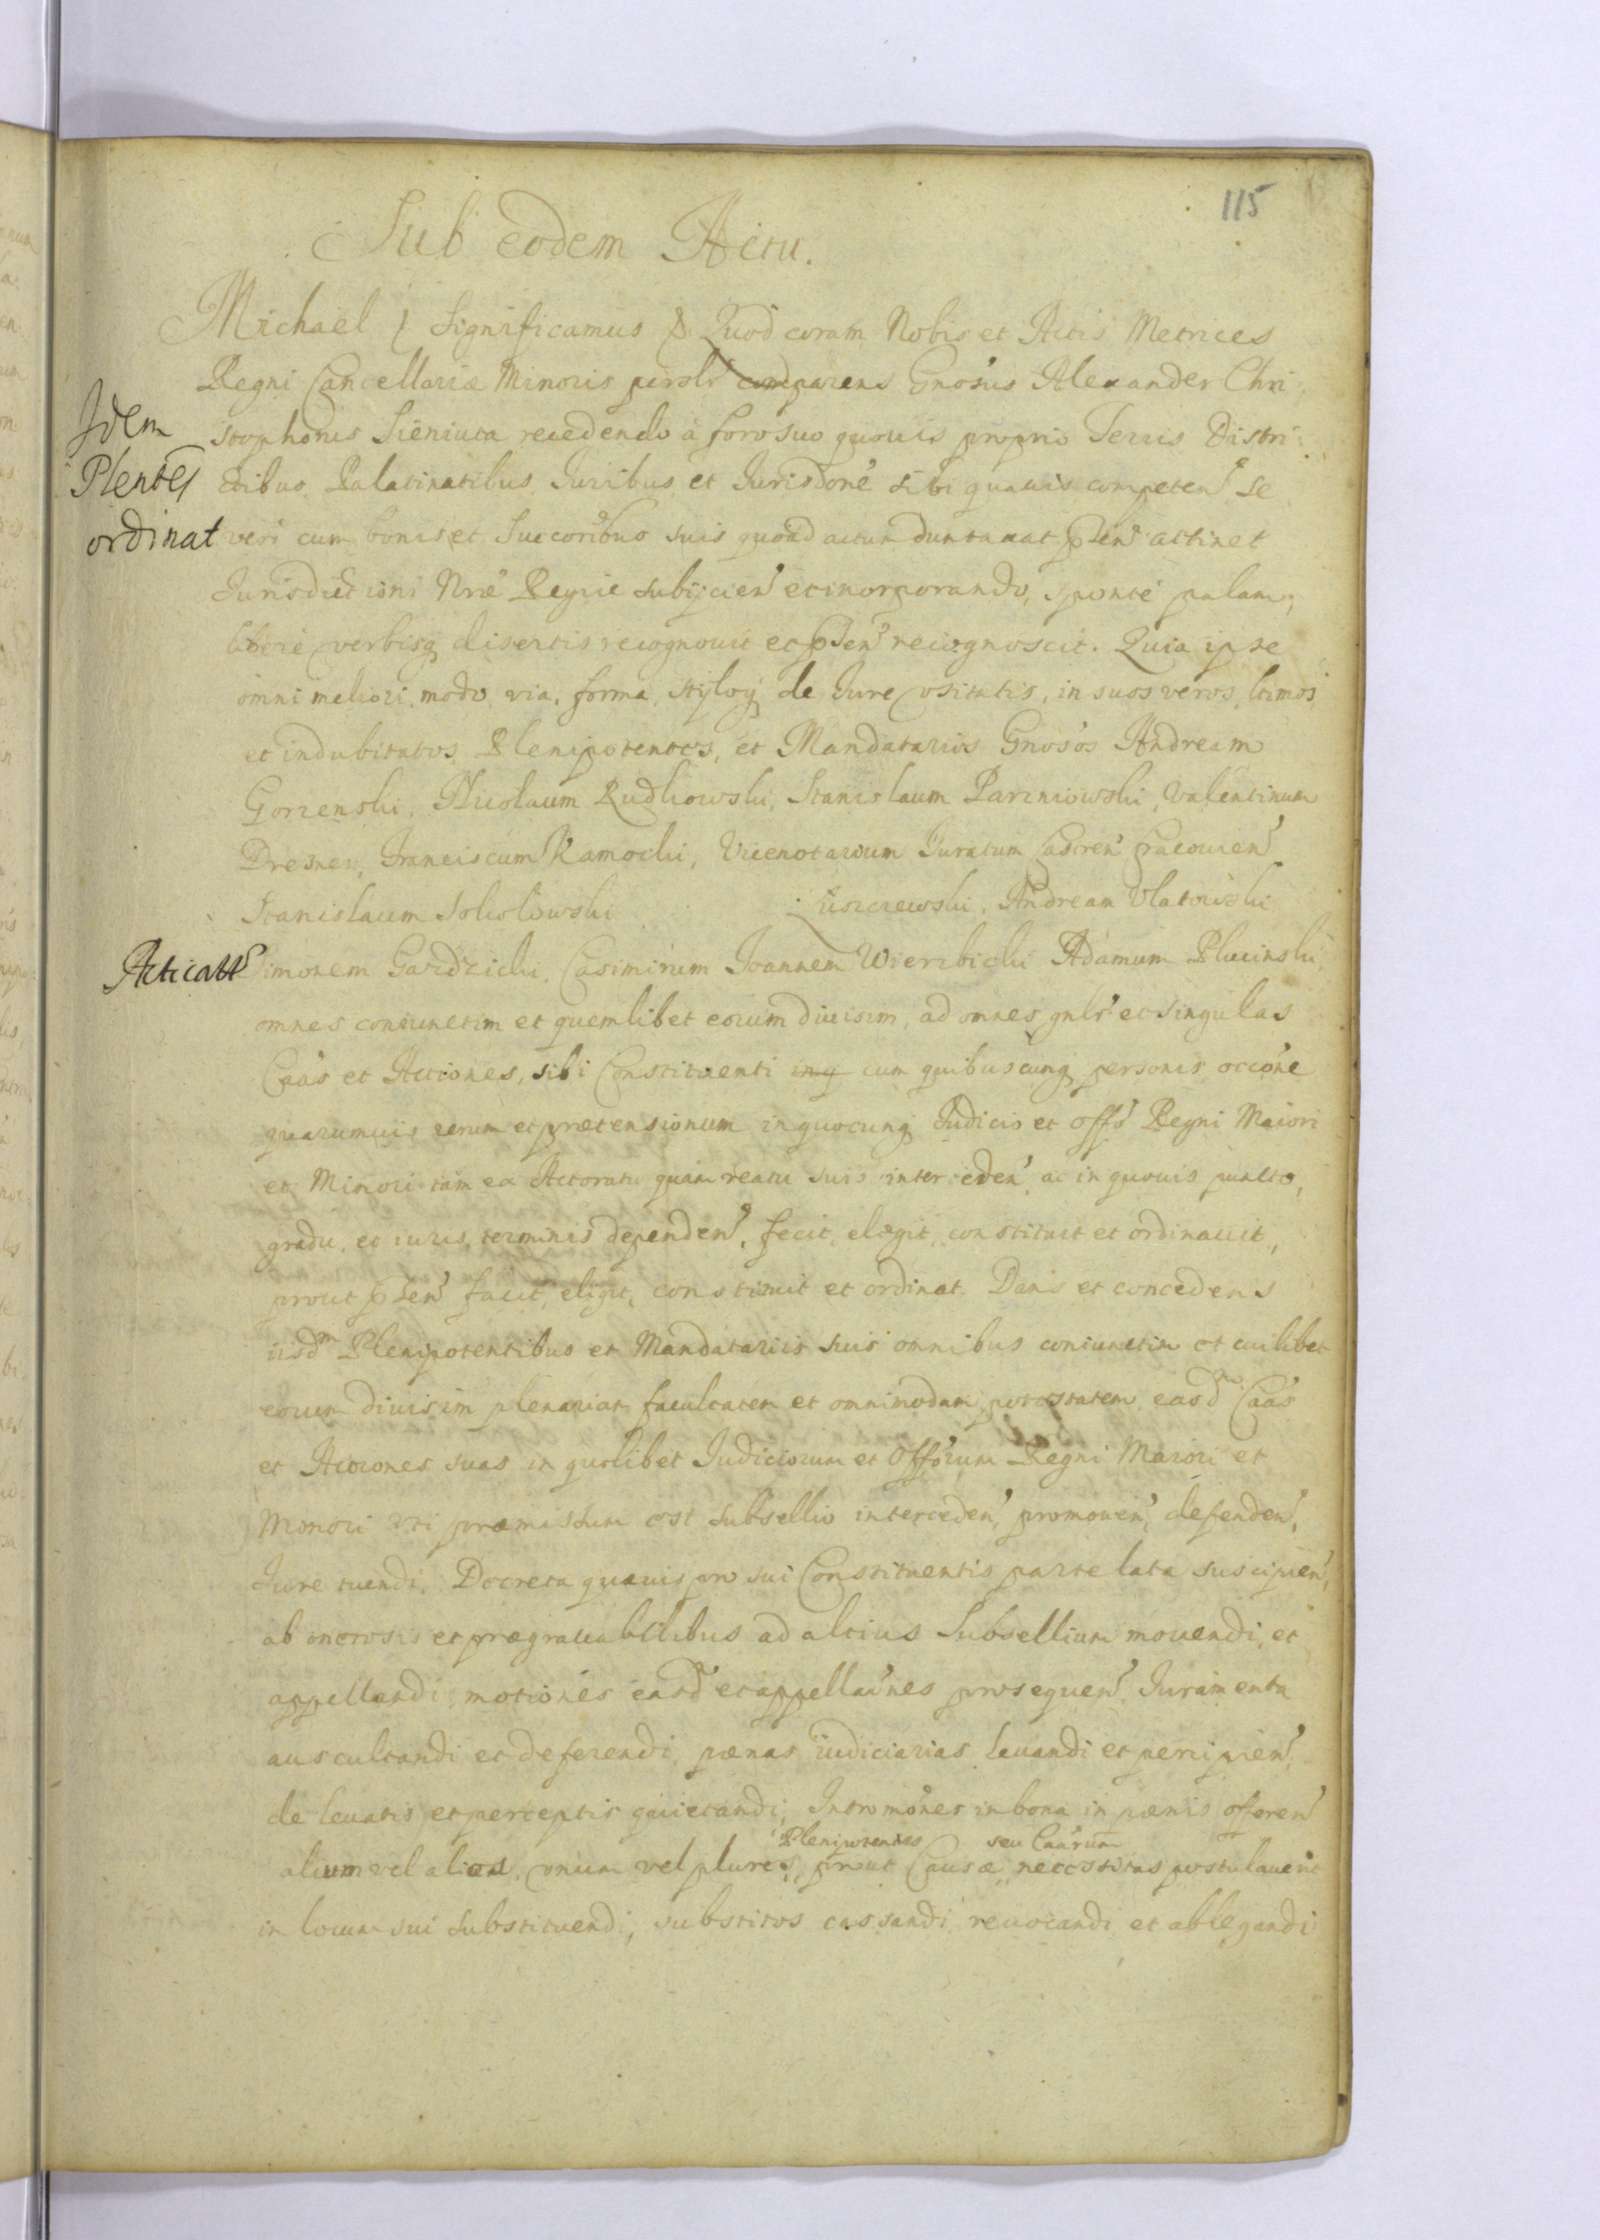 115
Sub eodem Actu.
Michael Significamus Quod coram Nobis et Actis Metrices
Regni Cancellariæ Minoris persolr comparens Gnosus Alexander Chri
stophorus Sieniuta recedendo a foro suo quouis proprio Terris Distri
Idem
Plentes
ordinat
ctibus Palatinatibus Juribus et Jurisdone sibi quauis competen se
vero cum bonis et Succoribus suis quoad actum duntaxat pnten attinet
Jurisdictioni Nræ Regiæ subijcien et incorporando, sponte palam,
libere verbisq disertis recognouit et pnten recognoscit. Quia ipse
omni meliori modo via, forma, styloq de Jure vsitatis, in suos veros, ltimos
et indubitatos Plenipotentes, et Mandatarios Gnosos Andream
Gorzenski, Nicolaum Rudkowski, Stanislaum Parzniowski, Valentinum
Dresner, Franciscum Kamocki, Vicenotarium Juratum Castren Cracouien
Stanislaum Sokolowski Kurczewski, Andream Vlatowski
Acticatt
Simonem Gardzicki, Casimirum Joannem Wierzbicki Adamum Plucinski,
omnes coniunctim et quemlibet eorum diuisim, ad omnes gnlr et singulas
Caas et Actiones, sibi Constituenti inq cum quibuscunq personis occone
quarumuis rerum et prætensionum in quocunq Judicio et Offo Regni Maiori
et Minori tam ex Actoratu quam reatu suis interceden ac in quouis puncto,
gradu, et iuris, terminis dependen, fecit, elegit, constituit et ordinauit,
prout pnten facit, eligit, constituit et ordinat. Dans et concedens
iisdm Plenipotentibus et Mandatariis suis omnibus coniunctim et cuilibet
eorum diuisim plenariam facultatem et omnimodam potestatem, easdm Caas
et Actiones suas in quolibet Judiciorum et Offorum Regni Maiori et
Minori vti præmissum est subsellio interceden, promouen, defenden,
Jure tuendi, Decreta quæuis pro sui Constituentis parte lata suscipien,
ab onerosis et prægrauabilibus ad altius Subsellium mouendi, et
appellandi, motiones easd et appellaones prosequen, Juramenta
auscultandi et deferendi, pænas iudiciarias leuandi et percipien,
de leuatis et perceptis quietandi, Intromones in bona in pænis offeren
Plenipotentes seu Caarum
alium vel alios, vnum vel plures, prout Causæ necessitas postulauerit
in locum sui substituendi, substitos cassandi reuocandi et ablegandi